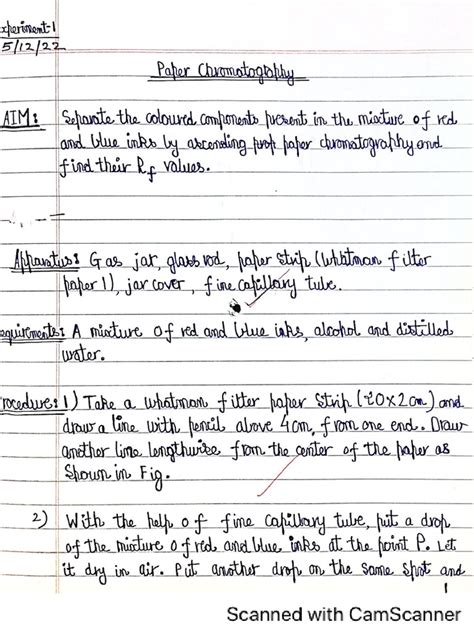 xperiment-1
5/12/22
Paper Chromatography
AIM: Separate the coloured components present in the mixture of red
and blue inks by ascending paper chromatography and
find their Rf values.
Apparatus: Gas jar, glass rod, paper strip (whatman filter
paper 1), jar cover, fine capillary tube.
equirements: A mixture of red and blue inks, alcohol and distilled
water.
rocedure: 1) Take a whatman filter paper strip (20x2cm) and
draw a line with pencil above 4cm, from one end. Draw
another line lengthwise from the center of the paper as
shown in Fig.
2) With the help of fine capillary tube, put a drop
of the mixture of red and blue inks at the point P. Let
it dry in air. Put another drop on the same spot and
1
Scanned with CamScanner